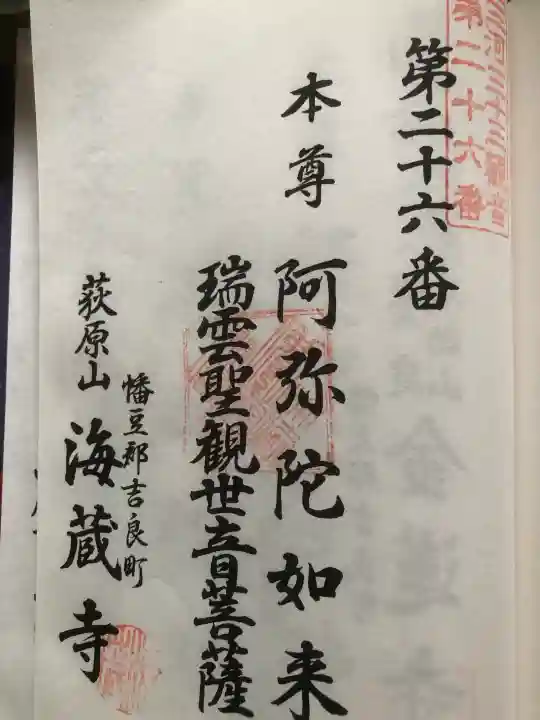 三河三十三観音
第二十六番
第二十六番
本尊 阿弥陀如来
瑞雲聖観世音菩薩
幡豆郡吉良町
荻原山 海蔵寺